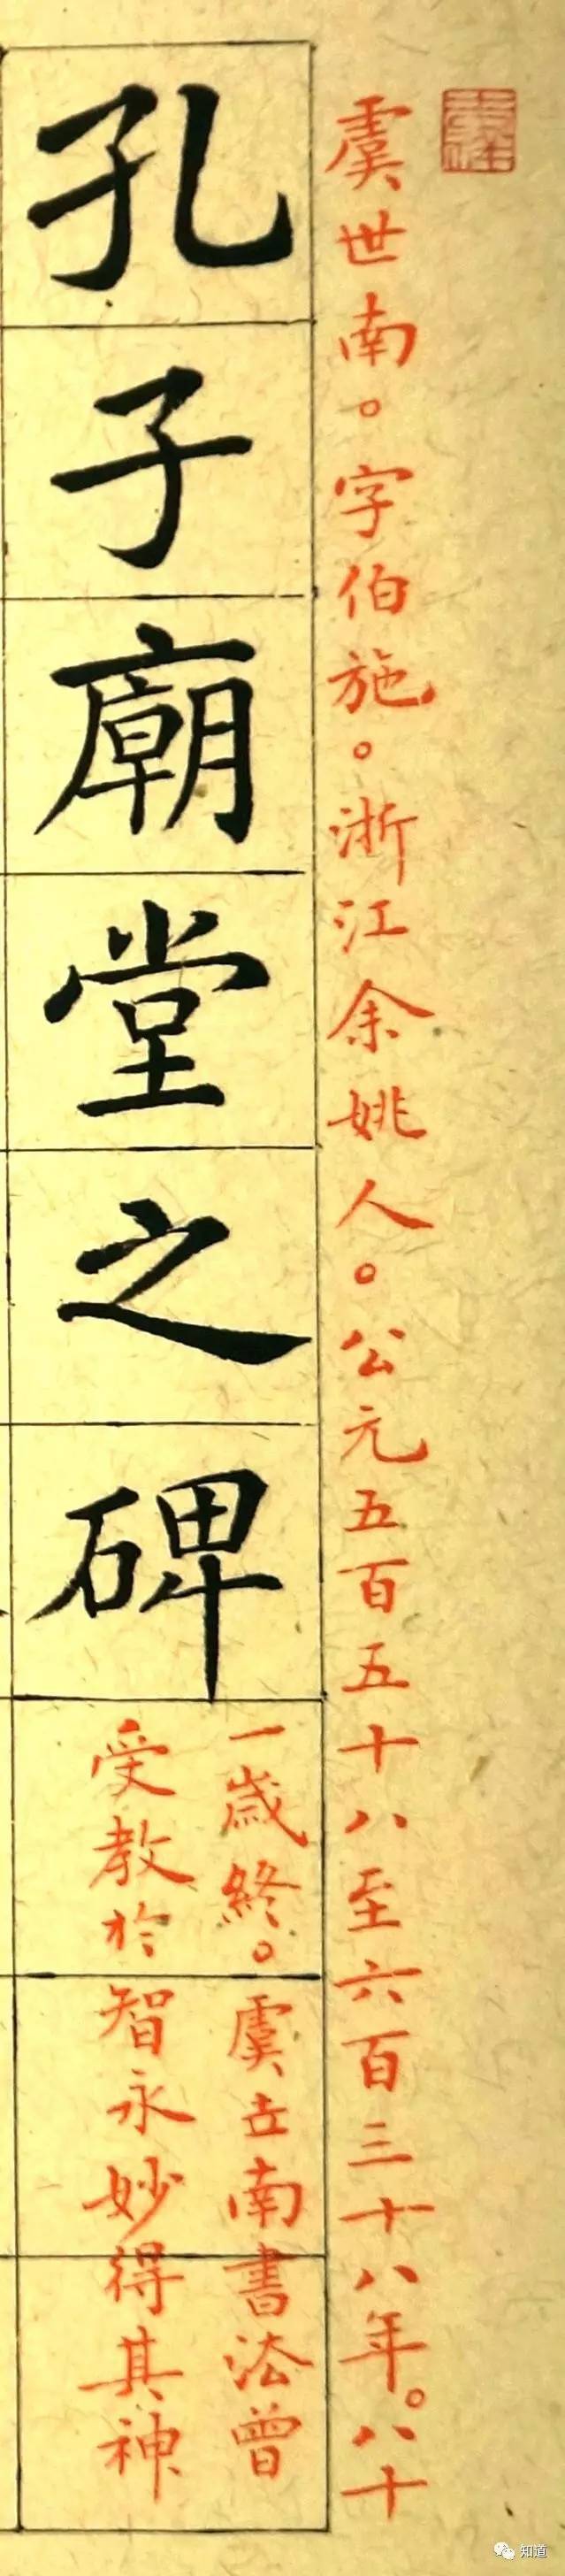 虞世南。字伯施。浙江余姚人。公元五百五十八至六百三十八年。八十
孔子廟堂之碑
一歲終。虞世南書法曾
受教於智永妙得其神
知道